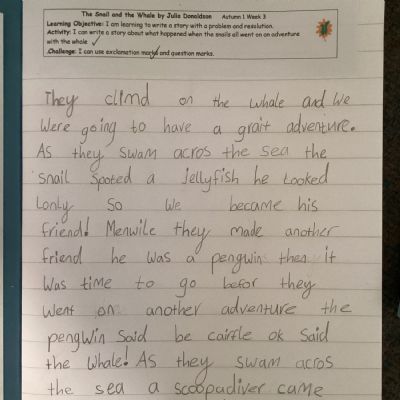 The Snail and the Whale by Julia Donaldson Autumn 1 Week 3
Learning Objective: I am learning to write a story with a problem and resolution.
Activity: I can write a story about what happened when the snails all went on an adventure
with the whale
Challenge: I can use exclamation marks and question marks.
They climd on the whale and We
Were going to have a grait adventure.
As they swam acros the sea the
snail Spoted a jellyfish he Looked
Lonly So We became his
friend! Menwile they made another
friend he was a pengwin then it
Was time to go befor they
went on another adventure the
pengwin Said be cairfle ok Said
the whale! As they swam acros
the sea a scoopadiver came